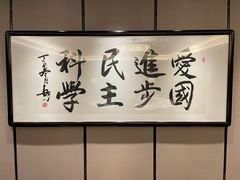 愛國
進步
民主
科學